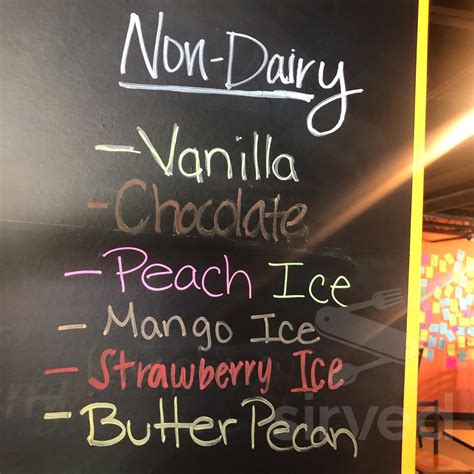 Non-Dairy
- Vanilla
- Chocolate
- Peach Ice
- Mango Ice
- Strawberry Ice
- Butter Pecan
sirved